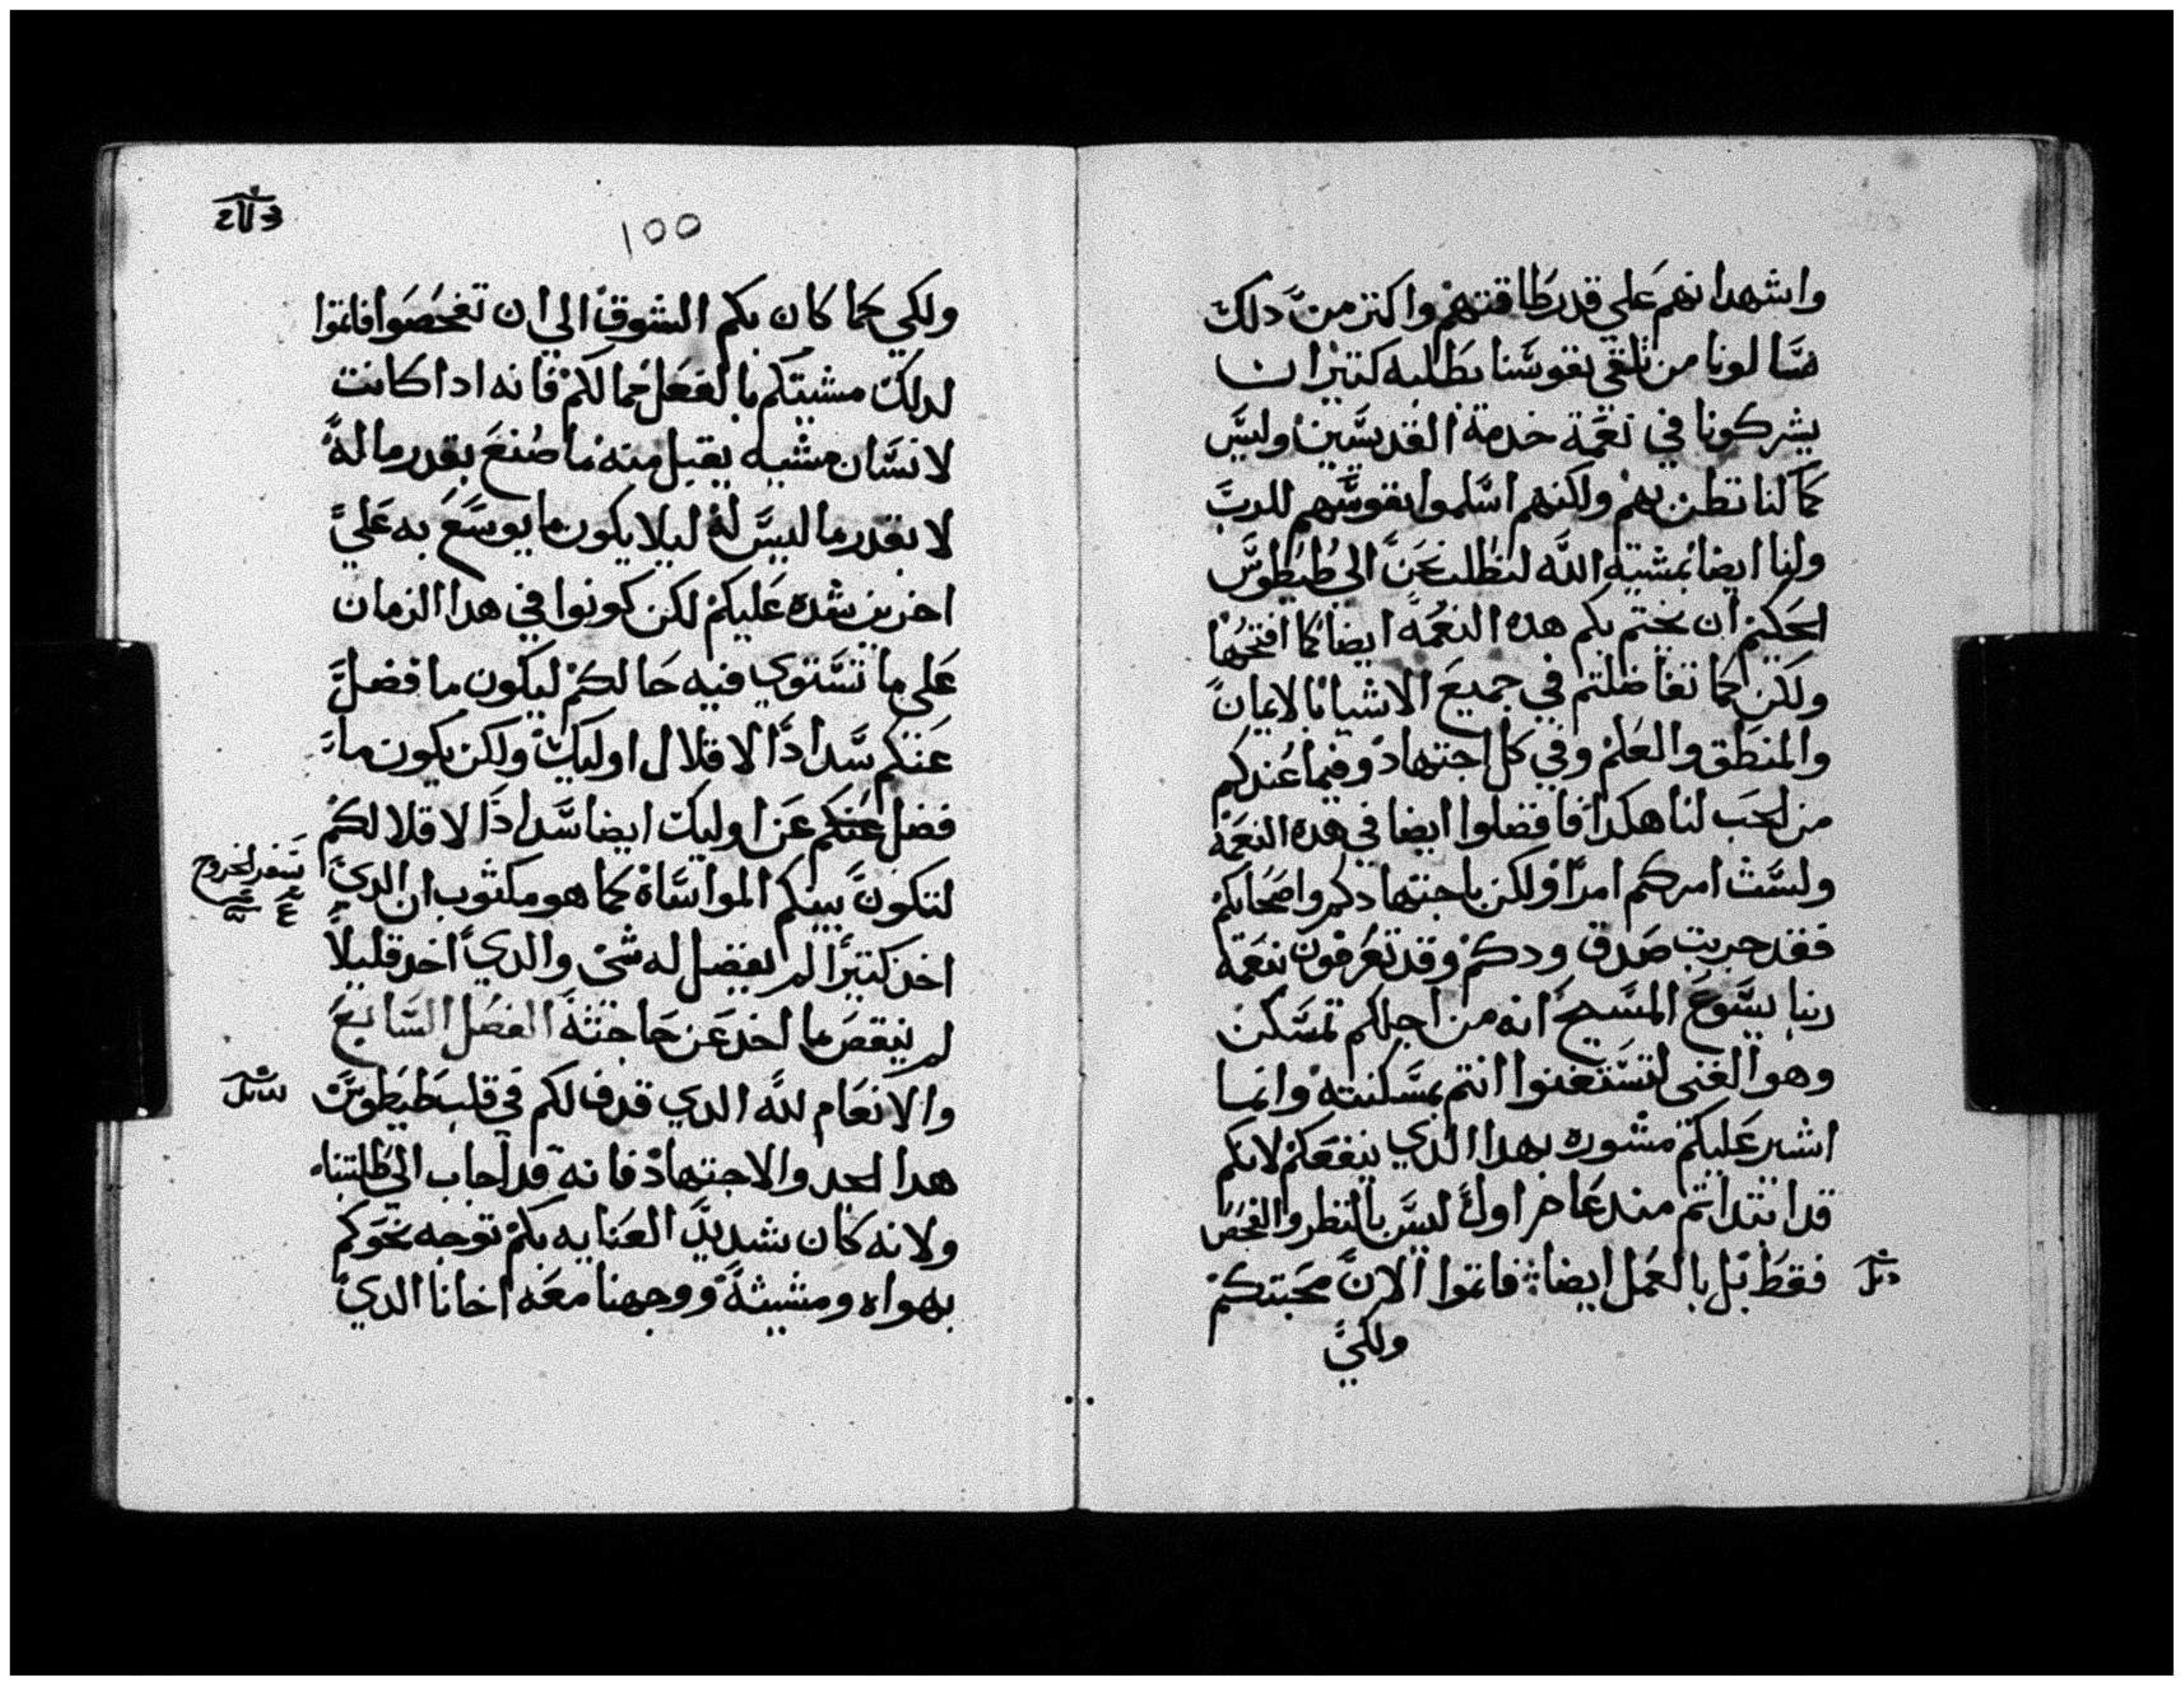 واشهد انهم علي قدر طاقتهم واكتر من دلك
سالونا من تلقي نفوسنا بطلبه كتيرا ان
يشركونا في نعمة خدمة القديسين وليس
كما كنا نظن بهم ولكنهم اسلموا نفوسهم للرب
ولنا ايضا بمشية الله لنطلب نحن الى طيطوس
الحكيم ان يختم بكم هده النعمه ايضا كما افتتحها
ولكن كما تفاضلتم في جميع الاشيا بالايمان
والمنطق والعلم وفي كل اجتهاد وفيما عندكم
من الحب لنا هكدا فافضلوا ايضا في هده النعمة
ولست امركم امرا ولكن باجتهادكم واصحابكم
فقد جربت صدق ودكم وقد تعرفون نعمة
ربنا يسوع المسيح انه من اجلكم تمسكن
وهو الغني لتستغنوا انتم بمسكنته وانما
اشير عليكم مشوره بهدا الدي ينفعكم لانكم
قد ابتداتم مند عام اول ليس بالنظر والفحص
فقط بل بالعمل ايضا فاتموا الان محبتكم
ولكي
١٥٥
ولكي كما كان بكم الشوق الى ان تفحصوا فاتموا
لدلك مشيتكم بالفعل مما لكم فانه ادا كانت
لانسان مشيه يقبل منه ما صنع بقدر ما له
لا بقدر ما ليس له ليلا يكون ما يوسع به علي
اخرين شده عليكم لكن كونوا في هدا الزمان
على ما تستوي فيه حالكم ليكون ما فضل
عنكم سدادا لاقلال اوليك ولكن يكون ما
فضل عنكم عن اوليك ايضا سدادا لاقلالكم
لتكون بينكم المواساة كما هو مكتوب ان الدي
سفر الخروج
اخد كتيرا لم يفضل له شى والدي اخد قليلا
لم ينقص ما اخد عن حاجته الفصل السابع
والانعام لله الدي قدف لكم في قلب طيطوس
هدا الجد والاجتهاد فانه قد اجاب الى طلبتنا
ولانه كان شديد العنايه بكم توجه نحوكم
بهواه ومشيئة ووجهنا معه اخانا الدي